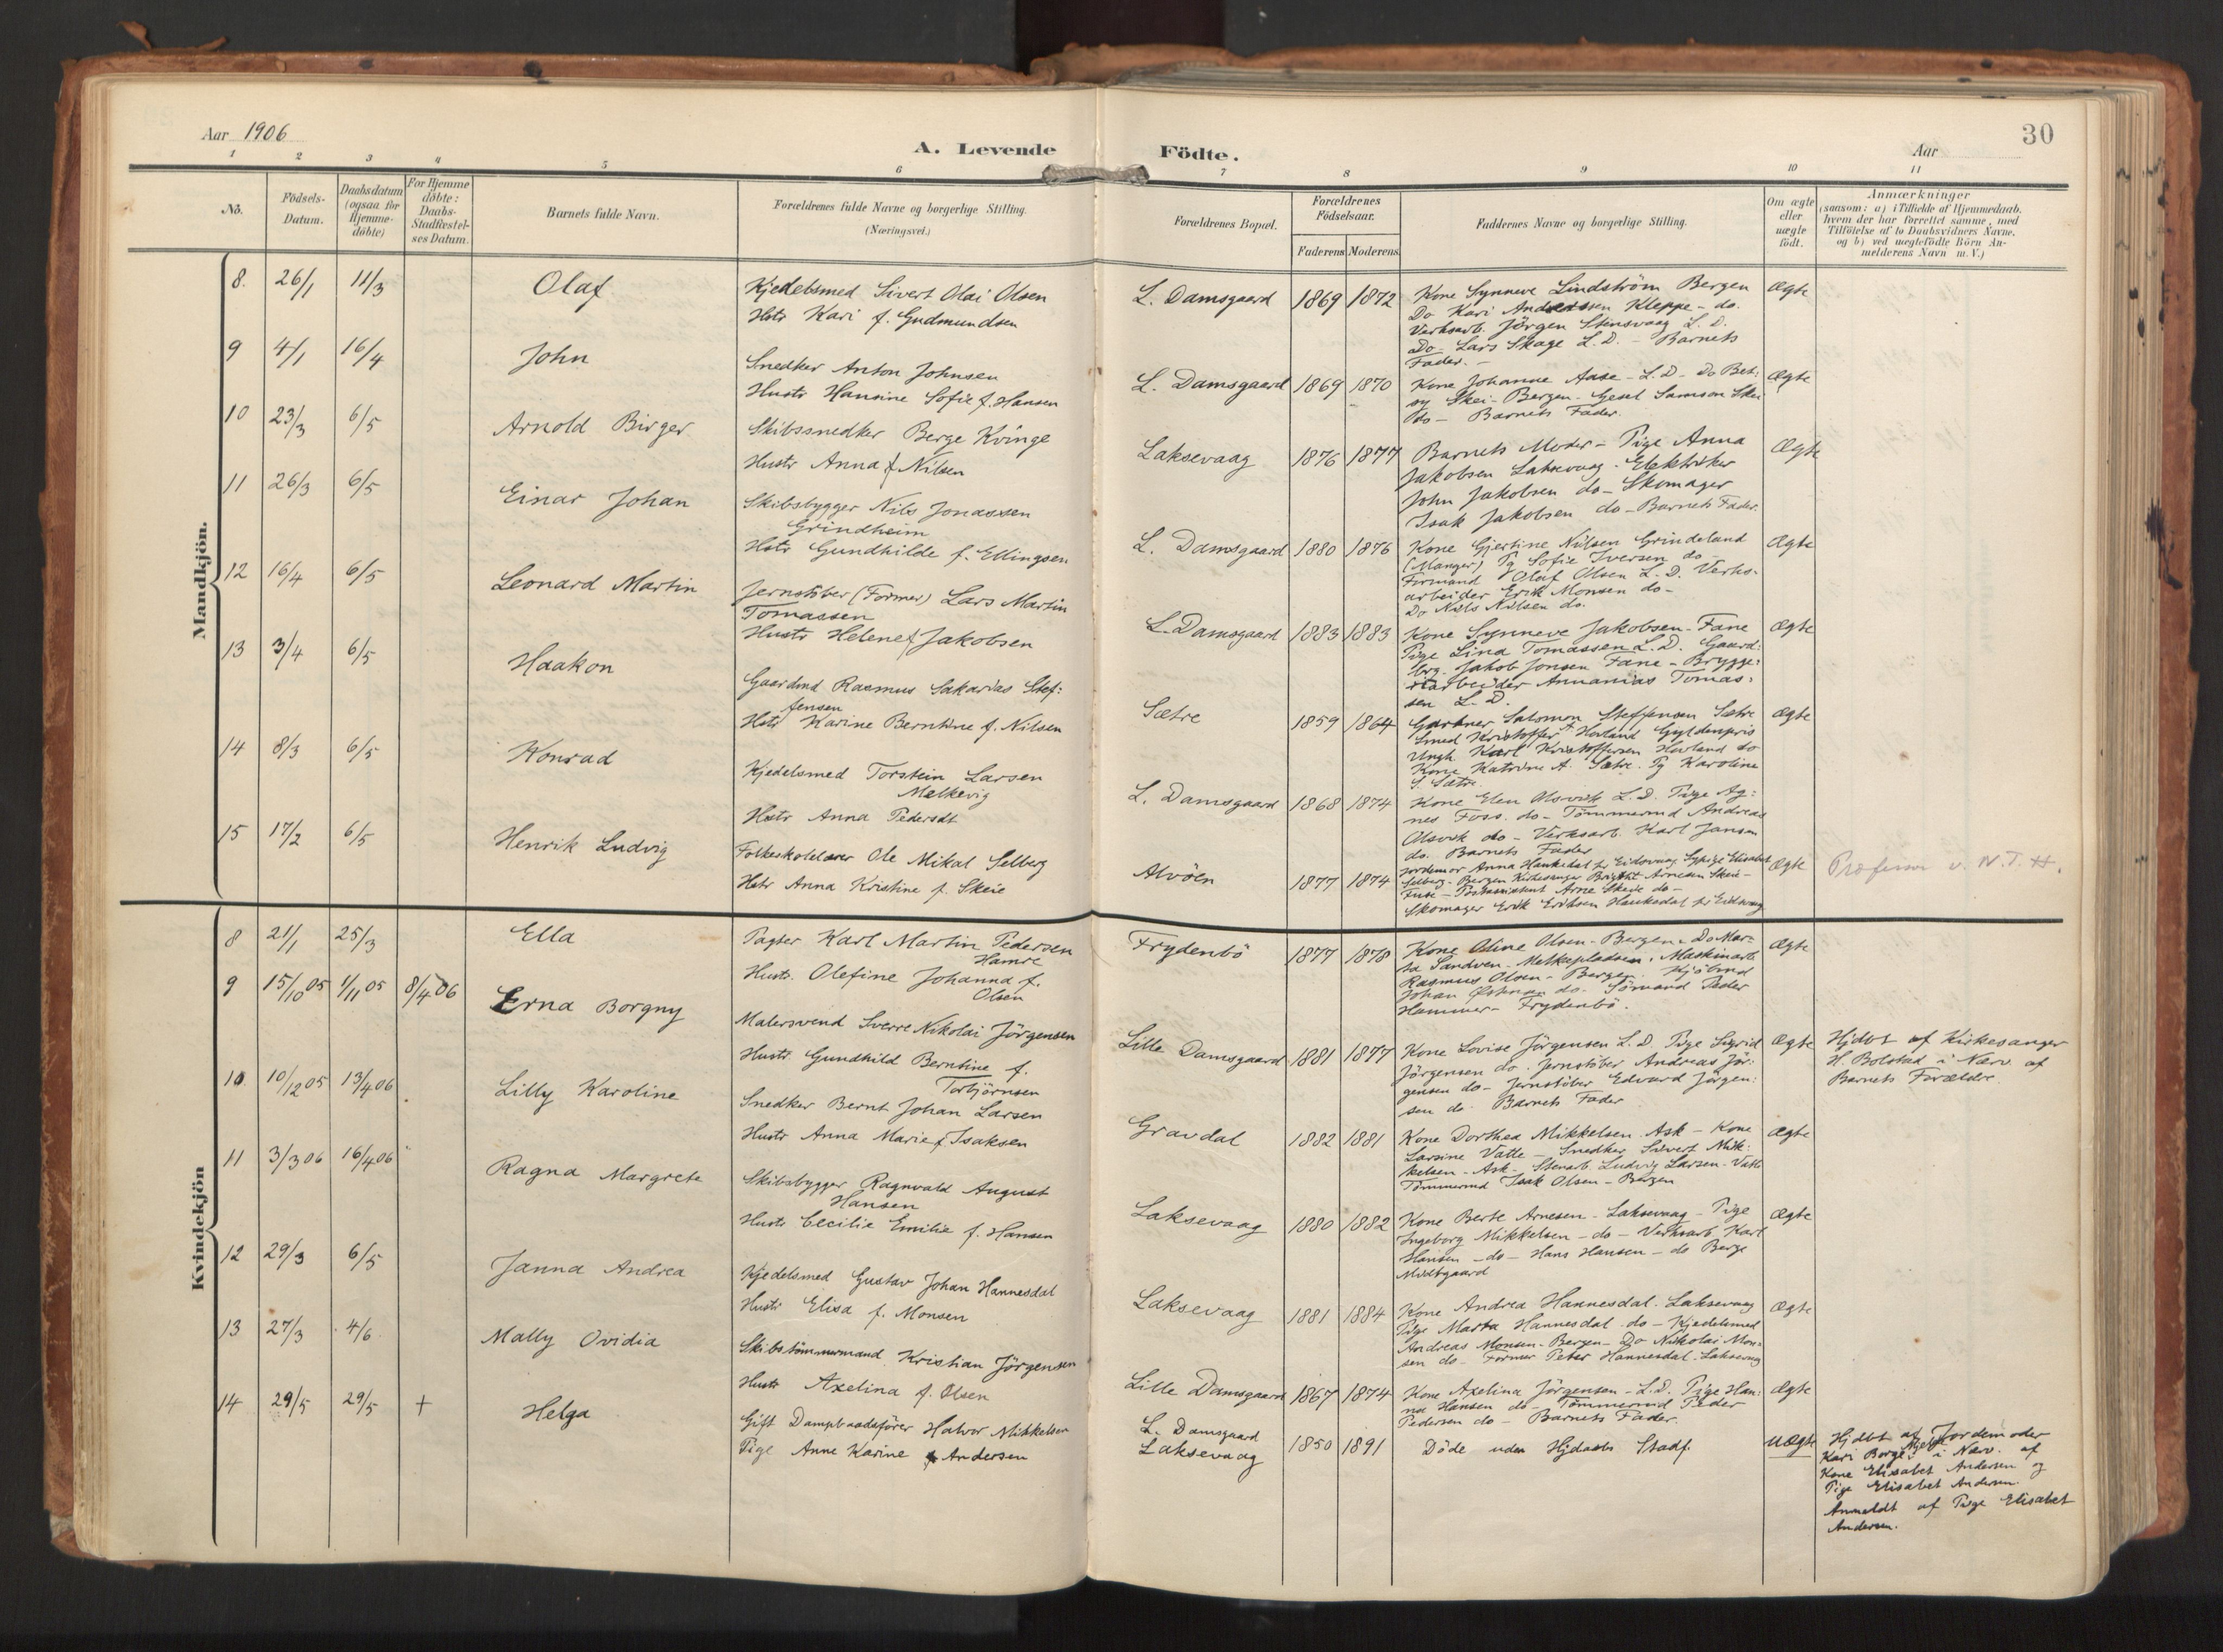 Aar 1906
A. Levende
Födte.
Aar
30
1 2 3 4 5 6 7 8 9 10 11
No.
Födsels-
Datum.
Daabsdatum
(ogsaa for
Hjemme-
döbte)
For Hjemme
döbte:
Daabs-
Stadfæstel-
ses Datum.
Barnets fulde Navn.
Forældrenes fulde Navne og borgerlige Stilling.
(Næringsvei.)
Forældrenes Bopæl.
Forældrenes
Födselsaar.
Faderens Moderens
Faddernes Navne og borgerlige Stilling.
Om ægte
eller
uægte
födt.
Anmærkninger
(saasom: a) i Tilfælde af Hjemmedaab.
hvem der har forrettet samme, med
Tilföielse af to Daabsvidners Navne.
og b) ved uægtefödte Börn An-
melderens Navn m. V.)
Mandkjön.
8. 26/1 11/3 Olaf
Kjedelsmed Sivert Olai Olsen
Hstr Kari f. Gudmundsen
L. Damsgaard 1869 1872
Kone Synneve Lindström Bergen
Do Kari Anderssen Kleppe - do.
Verksarb. Jörgen Stensvaag L. D.
Do Lars Skage L. D. - Barnets
Fader. -
Ægte
9 4/1 16/4 John
Snedker Anton Johnsen
Hustr Hansine Sofie f. Hansen
L. Damsgaard 1869 1870
Kone Johanne Aase - L. D. - Do Bet:
sy Skei - Bergen. Gesel Samson Skei
do - Barnets Fader.
Ægte
10 23/3 6/5 Arnold Birger
Skibssnedker Berge Kvinge
Hustr Anna f Nilsen
Laksevaag 1876 1877
Barnets Moder - Pige Anna
Jakobsen Laksevaag. Elektriker
John Jakobsen do - Skomager
Isak Jakobsen do - Barnets Fader.
Ægte
11 26/3 6/5 Einar Johan
Skibsbygger Nils Jonassen
Grindheim
Hstr Gundhilde f. Ellingsen
L. Damsgaard 1880 1876
Kone Gjertine Nilsen Grindeland
(Manger) Pg Sofie Iversen do -
Formand Olaf Olsen L. D. Verks-
arbeider Erik Monsen do -
Do Nils Nilsen do.
Ægte
12 16/4 6/5 Leonard Martin
Jernstöber (Former) Lars Martin
Tomassen
Hustr Helene f Jakobsen
L. Damsgaard 1883 1883
Kone Synneve Jakobsen - Fane
Pige Lina Tomassen L. D. Gaard:
brg. Jakob Jonsen Fane - Brygge:
riarbeider Annanias Tomas:
sen L. D.
Ægte
13 3/4 6/5 Haakon
Gaardmd Rasmus Sakarias Stef:
fensen
Hstr Karine Berntine f. Nilsen
Sætre 1859 1864
Gartner Salomon Steffensen Sætre
Smed Kristoffer A Hovland Gyldenpris
Ungk Karl Kristoffersen Hovland do
Kone Katrine A. Sætre. Pg Karoline
S. Sætre.
Ægte
14 8/3 6/5 Konrad
Kjedelsmed Torstein Larsen
Melkevig
Hstr Anna Pedersdt
L. Damsgaard 1868 1874
Kone Elen Alsvik L. D. Pige Ag:
nes Foss. do - Tömmermd Andreas
Alsvik do - Verksarb. Karl Jansen
do. Barnets Fader
Ægte
15 17/2 6/5 Henrik Ludvig
Folkeskolelærer Ole Mikal Selberg
Hstr Anna Kristine f. Skeie
Alvöen 1877 1874
Jordemor Anna Haukedal pr Eidsvaag Sypige Elisabet
Selberg - Bergen Kirkesanger Brigt Arnesen Skeie -
Fuse - Postassistent Arne Skeie do -
Skomager Erik Eriksen Haukedal pr Eidsvaag
Ægte
Professor v. N.T.H.
Kvindekjön
8 21/1 25/3 Ella
Pagter Karl Martin Pedersen
Hamre
Hustr. Olefine Johanna f.
Olsen
Frydenbö 1877 1878
Kone Oline Olsen - Bergen. Do Mar-
ta Sandven - Melkepladsen. Maskinarb
Rasmus Olsen - Bergen.
Johan do. Sömand Peder
Hammer - Frydenbö.
Ægte
9 15/10 05 1/11 05 8/4 06 Erna Borgny
Malersvend Sverre Nikolai Jörgensen
Hustr. Gundhild Berntine f.
Torbjörnsen
Lille Damsgaard 1881 1877
Kone Lovise Jörgensen L. D. Pige Sigrid
Jörgensen do. Jernstöber Andreas Jör:
gensen do - Jernstöber Edvard Jörgen:
sen do - Barnets Fader
Ægte
Hjdbt af Kirkesanger
H. Bolstad i Nærv. af
Barnets Forældre.
10. 10/12 05 13/4 06 Lilly Karoline
Snedker Bernt Johan Larsen
Hustr Anna Marie f. Isaksen
Gravdal 1882 1881
Kone Dorthea Mikkelsen. Ask - Kone
Larsine Vatle - Snedker Sivert Mik:
kelsen - Ask - Stenarb. Ludvig Larsen - Vatle
Tömmermd Isak Olsen - Bergen
Ægte
11 3/3 06 16/4 06 Ragna Margrete
Skibsbygger Ragnvald August
Hansen
Hustr Cecilie Emilie f. Hansen
Laksevaag 1880 1882
Kone Berte Arnesen - Laksevaag - Pige
Ingeborg Mikkelsen - do - Verksarb Karl
Hansen - do - Hans Hansen - do Berge
Midtgaard
Ægte
12 29/3 6/5 Janna Andrea
Kjedelsmed Gustav Johan Hannesdal
Hustr Elisa f. Monsen
Laksevaag 1881 1884
Kone Andrea Hannesdal. Laksevaag
Pige Marta Hannesdal do - Kjedelsmed
Andreas Monsen - Bergen - Do Nikolai Mon-
sen do - Former Peter Hannesdal. Laksevaag
Ægte
13 27/3 4/6 Mally Ovidia
Skibstömmermand Kristian Jörgensen
Hustr Axelina f. Olsen
Lille Damsgaard 1867 1874
Kone Axelina Jörgensen - L. D. Pige Han:
na Hansen do - Tömmermd Peder
Pedersen do - Barnets Fader.
Ægte
14 29/5 29/5 + Helga
Gift Dampbaadsförer Halvor Mikkelsen
Pige Anne Karine Andersen
L. Damsgaard
Laksevaag 1850 1891
Döde uden Hjdaabs Stadf.
uægte
Hjdbt af Jordemoder
Kari Borge i Nærv. af
Kone Elisabet Andersen og
Pige Elisabet Andersen.
Anmeldt af Pige Elisabet
Andersen.